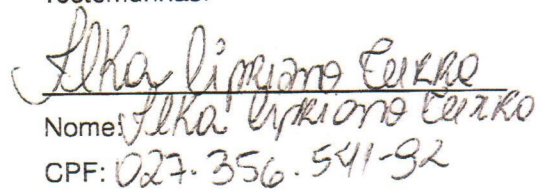 Testemunhas:
Ilka Cipriano Turra
Nome: Ilka Cipriano Turra
CPF: 027.356.541-92